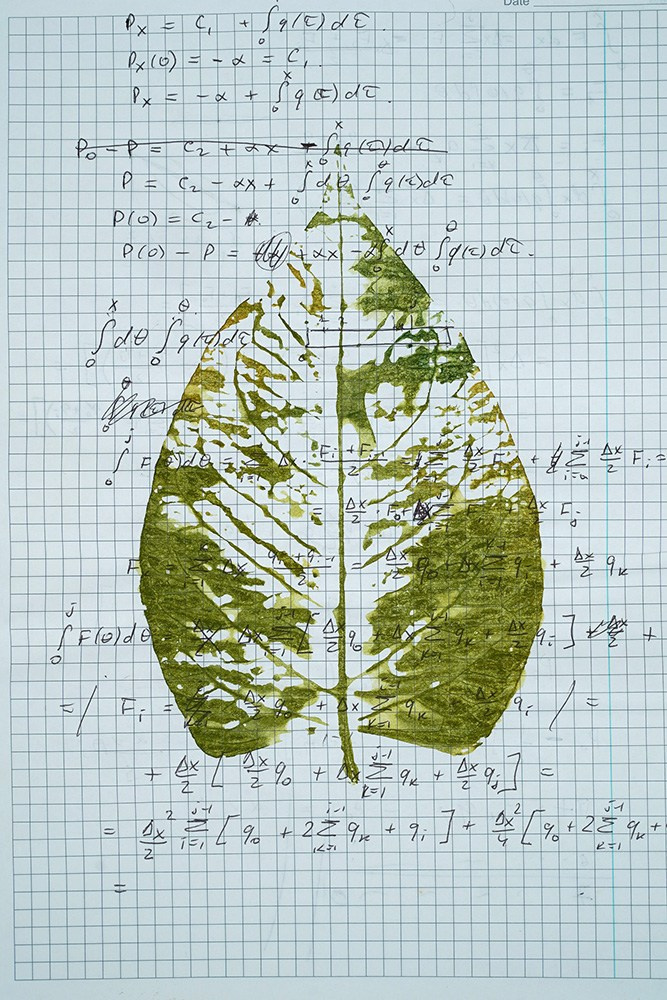 Date
Pₓ = C₁ + ∫₀ˣ q(τ)dτ.
Pₓ(0) = -α = C₁.
Pₓ = -α + ∫₀ˣ q(τ)dτ.
P₀ - P = C₂ + αx - ∫₀ˣ q(τ)dτ
P = C₂ - αx + ∫₀ˣ dθ ∫₀^θ q(τ)dτ
P(0) = C₂
P(0) - P = + αx - ∫₀ˣ dθ ∫₀^θ q(τ)dτ.
∫₀ˣ dθ ∫₀^θ q(τ)dτ
∫₀^j F(θ)dθ = Δx (Fᵢ + Fᵢ₋₁) Δx/2 Fᵢ + ∑ᵢ₌₀^(j-1) Δx/2 Fᵢ =
= Δx/2 · F₀ + Δx/2 Fⱼ
Δx (qᵢ + qᵢ₋₁)/2 = Δx/2 q₀ + Δx ∑ qᵢ + Δx/2 qₖ
∫₀^j F(θ)dθ Δx ∑ᵢ₌₁^(j-1) [Δx/2 q₀ + Δx ∑ₖ₌₁ qₖ + Δx/2 qᵢ] +
= / Fᵢ = Δx/2 q₀ + Δx ∑ₖ₌₁ qₖ Δx/2 qᵢ / =
+ Δx/2 [Δx/2 q₀ + Δx ∑ₖ₌₁^(j-1) qₖ + Δx/2 qⱼ] =
= Δx²/2 ∑ᵢ₌₁^(j-1) [q₀ + 2∑ₖ₌₁^(i-1) qₖ + qᵢ] + Δx²/4 [q₀ + 2∑ₖ₌₁^(j-1) qₖ +
=